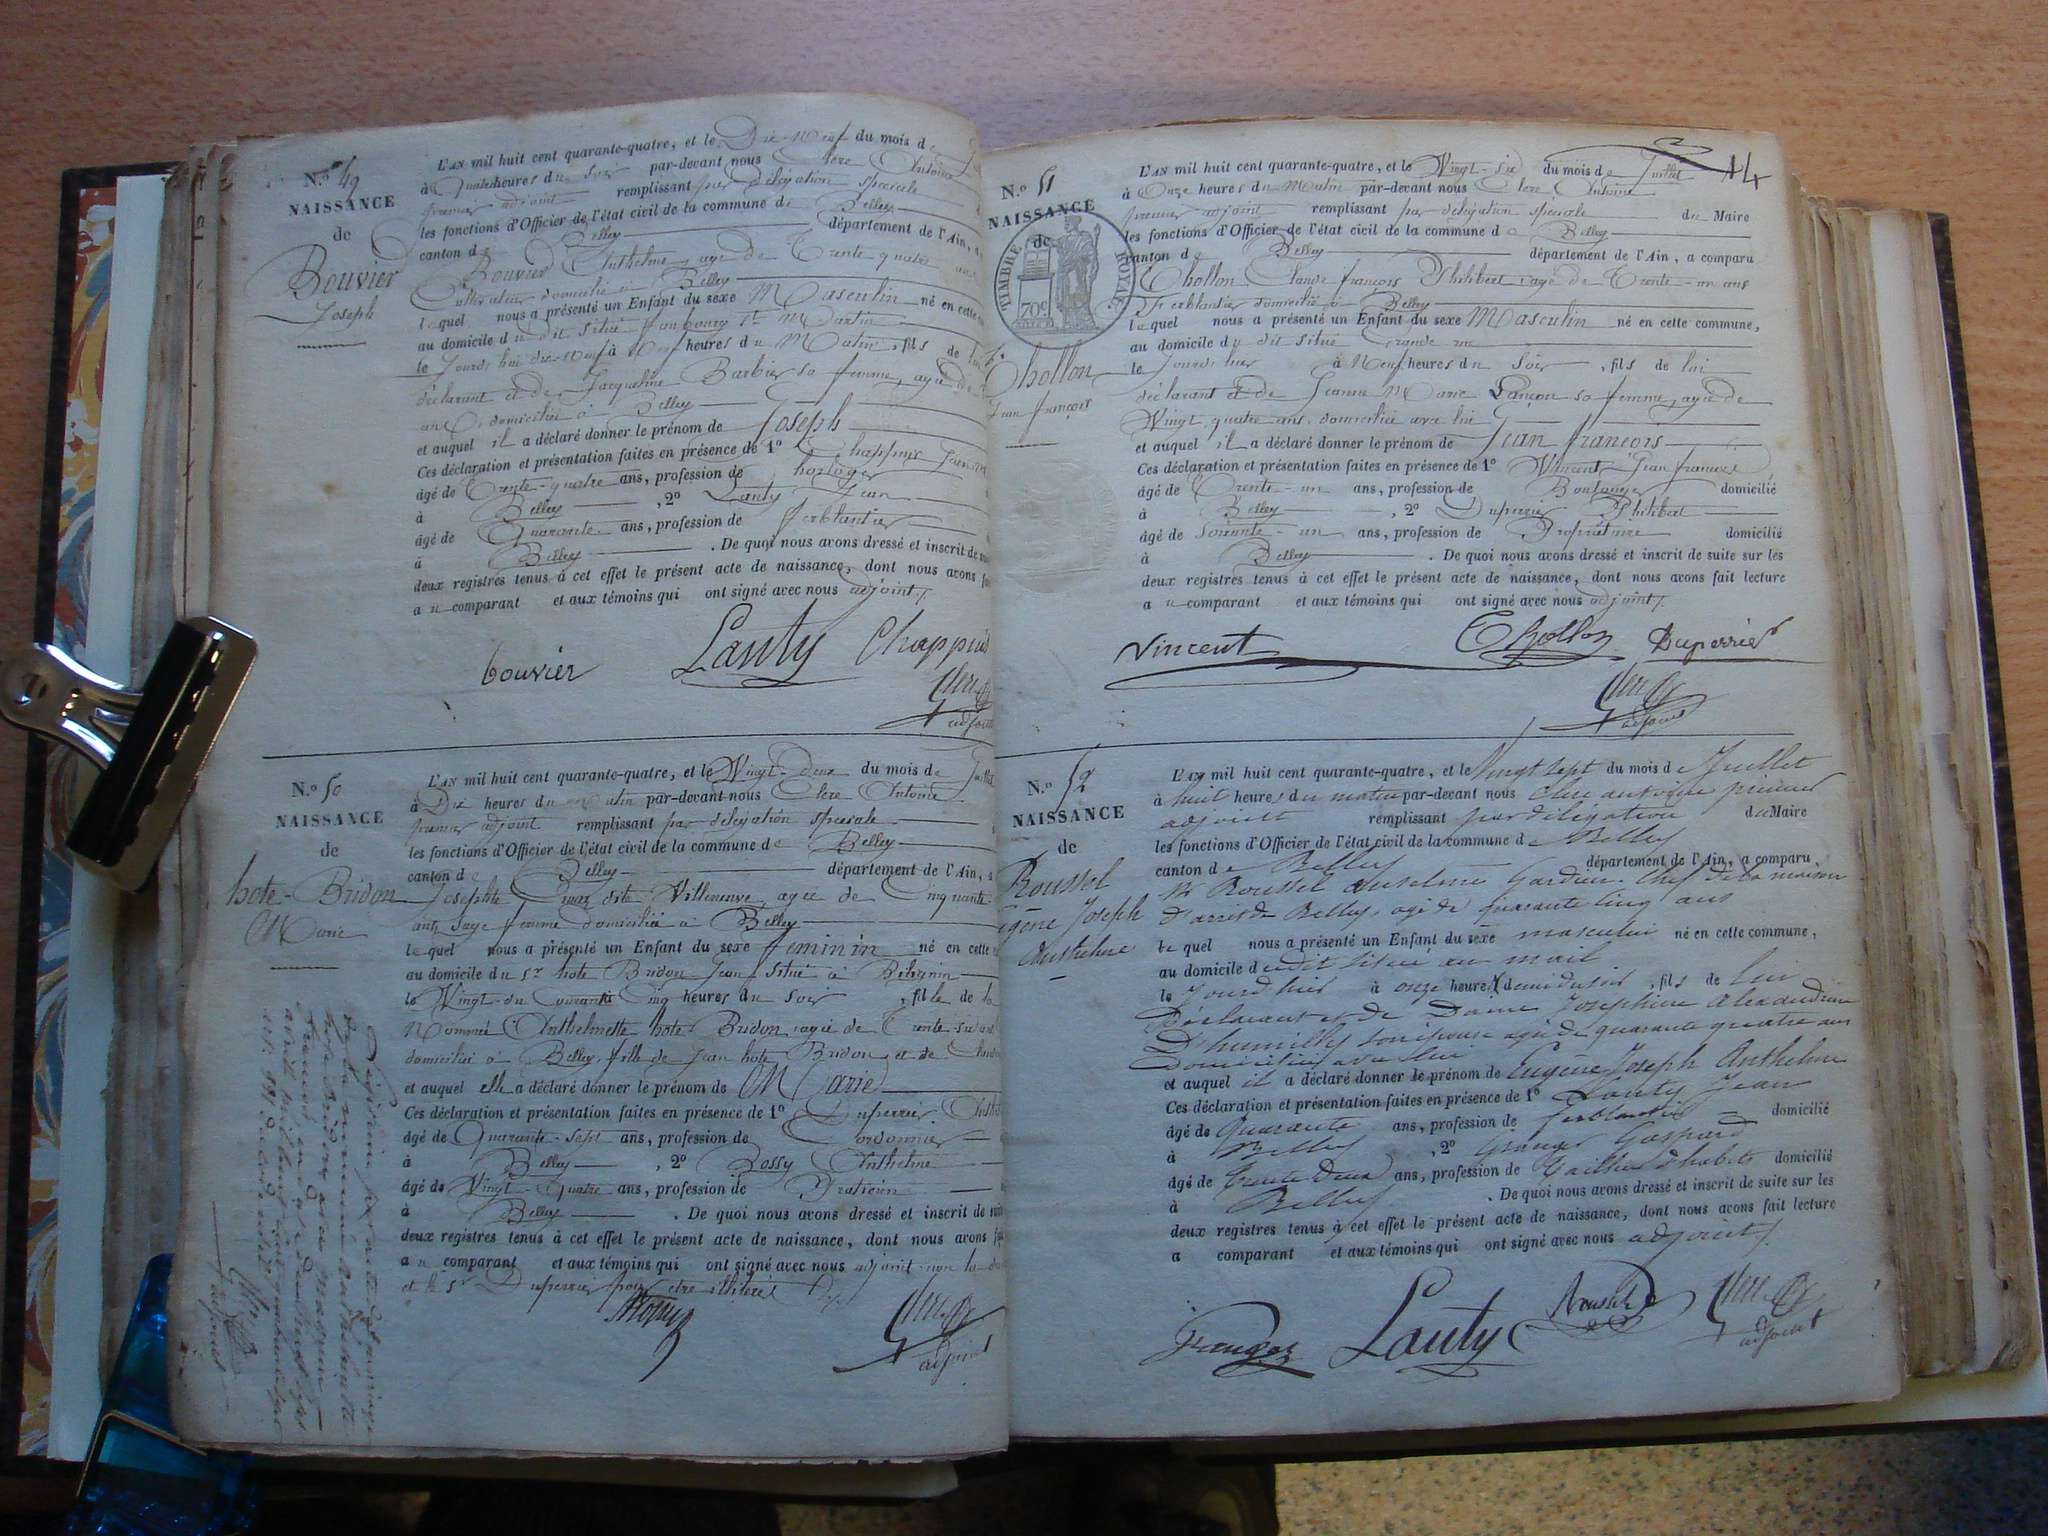 N.° 49
NAISSANCE
de
Bouvier
Joseph
L'AN mil huit cent quarante-quatre, et le Dix Neuf du mois de
à Quatre heures du Soir par-devant nous Clerc Antoine
premier adjoint remplissant par délégation spéciale
les fonctions d'Officier de l'état civil de la commune de Belley
canton de Belley département de l'Ain, a
Bouvier Anthelme, agé de Trente quatre ans
Cultivateur domicilié à Belley
lequel nous a présenté un Enfant du sexe Masculin né en cette
au domicile du dit situé faubourg St Martin
le Jourd'hui dix-neuf à Neuf heures du Matin, fils de lui
déclarant et de Jacqueline Barbier sa femme, agée de
ans domiciliée à Belley
et auquel il a déclaré donner le prénom de Joseph
Ces déclaration et présentation faites en présence de 1° Chappuis Jean
âgé de Trente-quatre ans, profession de horloger
à Belley, 2° Lauty Jean
âgé de Quarante ans, profession de ferblantier
à Belley. De quoi nous avons dressé et inscrit de
deux registres tenus à cet effet le présent acte de naissance, dont nous avons
au comparant et aux témoins qui ont signé avec nous adjoint.
bouvier Lauty Chappuis
Clerc
adjoint
N.° 50
NAISSANCE
de
hote-Bridon
Marie
L'AN mil huit cent quarante-quatre, et le Vingt-Deux du mois de Juillet
à Dix heures du Matin par-devant nous Clerc Antoine
premier adjoint remplissant par délégation spéciale
les fonctions d'Officier de l'état civil de la commune de Belley
canton de Belley département de l'Ain, a
Josephte dite Villeneuve, agée de Cinquante
ans, Sage femme domiciliée à Belley
lequel nous a présenté un Enfant du sexe feminin né en cette
au domicile du Sr. hote Bridon Jean situé à
le Vingt-un Courant à Cinq heures du Soir, fille de la
Nommée Anthelmette hote-Bridon agée de Trente-six ans
domiciliée à Belley, fille de Jean hote Bridon, et de
et auquel elle a déclaré donner le prénom de Marie
Ces déclaration et présentation faites en présence de 1° Duperrier
âgé de Quarante-sept ans, profession de Cordonnier
à Belley, 2° Rossy Anthelme
âgé de Vingt-Quatre ans, profession de Praticien
à Belley. De quoi nous avons dressé et inscrit de
deux registres tenus à cet effet le présent acte de naissance, dont nous avons
au comparant et aux témoins qui ont signé avec nous adjoint non la
et le Sr. Duperrier pour être illitérés
Clerc
adjoint
14
N.° 51
NAISSANCE
de
TIMBRE ROYAL
70c
Chollon
Jean françois
L'AN mil huit cent quarante-quatre, et le Vingt-Six du mois de Juillet
à Onze heures du Matin par-devant nous Clerc Antoine
premier adjoint remplissant par délégation spéciale du Maire
les fonctions d'Officier de l'état civil de la commune de Belley
canton de Belley département de l'Ain, a comparu
Chollon Claude françois Philibert agé de Trente-un ans
Ferblantier domicilié à Belley
lequel nous a présenté un Enfant du sexe Masculin né en cette commune,
au domicile du dit situé Grande rue
le Jourd'hier à Neuf heures du Soir, fils de lui
déclarant et de Jeanne Marie Lançon sa femme, agée de
Vingt quatre ans, domiciliée avec lui
et auquel il a déclaré donner le prénom de Jean françois
Ces déclaration et présentation faites en présence de 1° Vincent Jean françois
âgé de Trente-un ans, profession de Boulanger domicilié
à Belley, 2° Duperrier Philibert
âgé de Soixante-un ans, profession de Propriétaire domicilié
à Belley. De quoi nous avons dressé et inscrit de suite sur les
deux registres tenus à cet effet le présent acte de naissance, dont nous avons fait lecture
au comparant et aux témoins qui ont signé avec nous adjoint.
Vincent Chollon Duperrier
Clerc
adjoint
N.° 52
NAISSANCE
de
Roussel
Eugène Joseph
Anthelme
L'AN mil huit cent quarante-quatre, et le Vingt sept du mois de Juillet
à huit heures du matin par-devant nous Clerc antoine premier
adjoint remplissant par délégation du Maire
les fonctions d'Officier de l'état civil de la commune de Belley
canton de Belley département de l'Ain, a comparu
Mr Roussel Anselme Gardien Chef de la maison
d'arrêt de Belley, agé de quarante cinq ans
lequel nous a présenté un Enfant du sexe masculin né en cette commune,
au domicile dudit situé au mail
le Jourd'hier à onze heures & demi du soir, fils de lui
Déclarant et de Dame Josephine Alexandrine
D'humilly son épouse agée de quarante quatre ans
Domiciliée avec lui
et auquel il a déclaré donner le prénom de Eugène Joseph Anthelme
Ces déclaration et présentation faites en présence de 1° Lauty Jean
âgé de Quarante ans, profession de ferblantier domicilié
à Belley, 2° Gaspard
âgé de trente Deux ans, profession de Tailleur d'habits domicilié
à Belley. De quoi nous avons dressé et inscrit de suite sur les
deux registres tenus à cet effet le présent acte de naissance, dont nous avons fait lecture
a comparant et aux témoins qui ont signé avec nous adjoint.
Lauty Roussel Clerc
adjoint